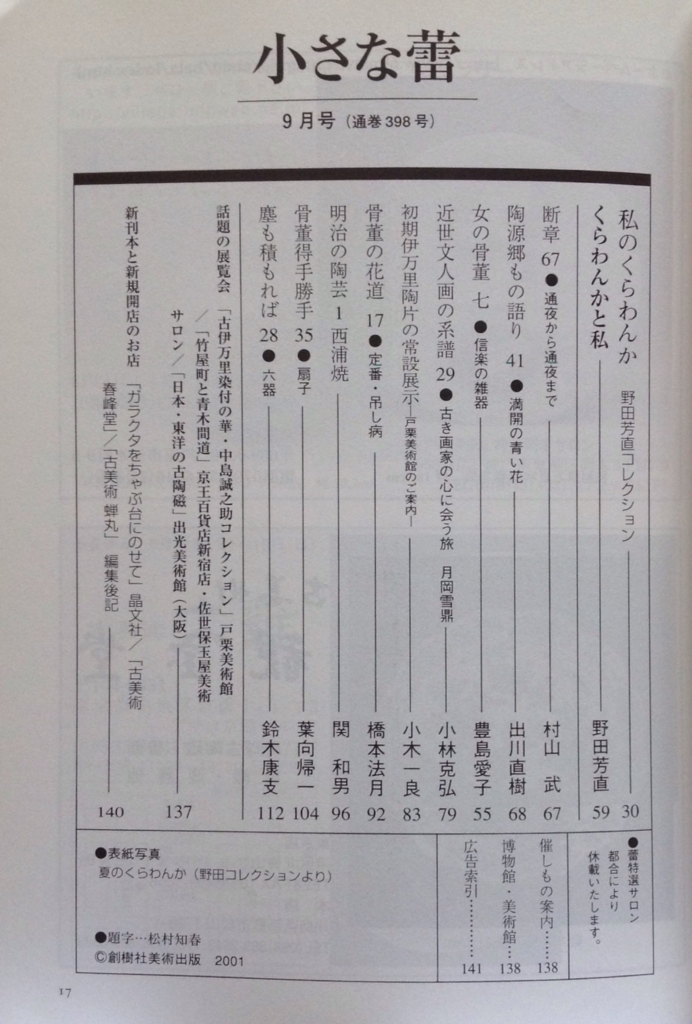 小さな蕾
9月号（通巻398号）
私のくらわんか 野田芳直コレクション 30
くらわんかと私 野田芳直 59
断章 67●通夜から通夜まで 村山 武 67
陶源郷もの語り 41●満開の青い花 出川直樹 68
女の骨董 七●信楽の雑器 豊島愛子 55
近世文人画の系譜 29●古き画家の心に会う旅 月岡雪鼎 小林克弘 79
初期伊万里陶片の常設展示―戸栗美術館のご案内― 小木一良 83
骨董の花道 17●定番・吊し病 橋本法月 92
明治の陶芸 1 西浦焼 関 和男 96
骨董得手勝手 35●扇子 葉向帰一 104
塵も積もれば 28●六器 鈴木康支 112
話題の展覧会 「古伊万里染付の華・中島誠之助コレクション」戸栗美術館
／「竹屋町と青木間道」京王百貨店新宿店・佐世保玉屋美術
サロン／「日本・東洋の古陶磁」出光美術館（大阪） 137
新刊本と新規開店のお店 「ガラクタをちゃぶ台にのせて」晶文社／「古美術
春峰堂」／「古美術 蝉丸」 編集後記 140
●蕾特選サロン
都合により
休載いたします。
催しもの案内………… 138
博物館・美術館…… 138
広告索引………… 141
●表紙写真
夏のくらわんか（野田コレクションより）
●題字…松村知春
©創樹社美術出版 2001
17